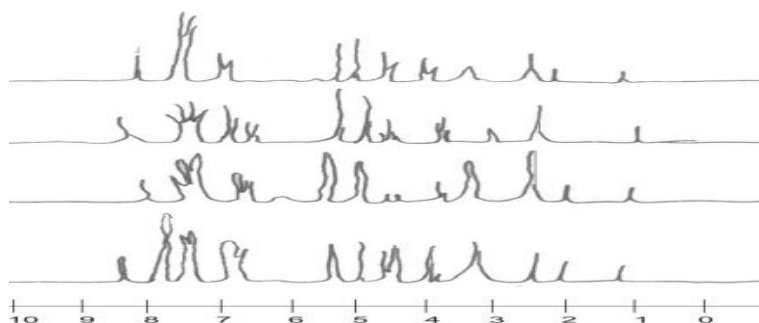 10 9 8 7 6 5 4 3 2 1 0